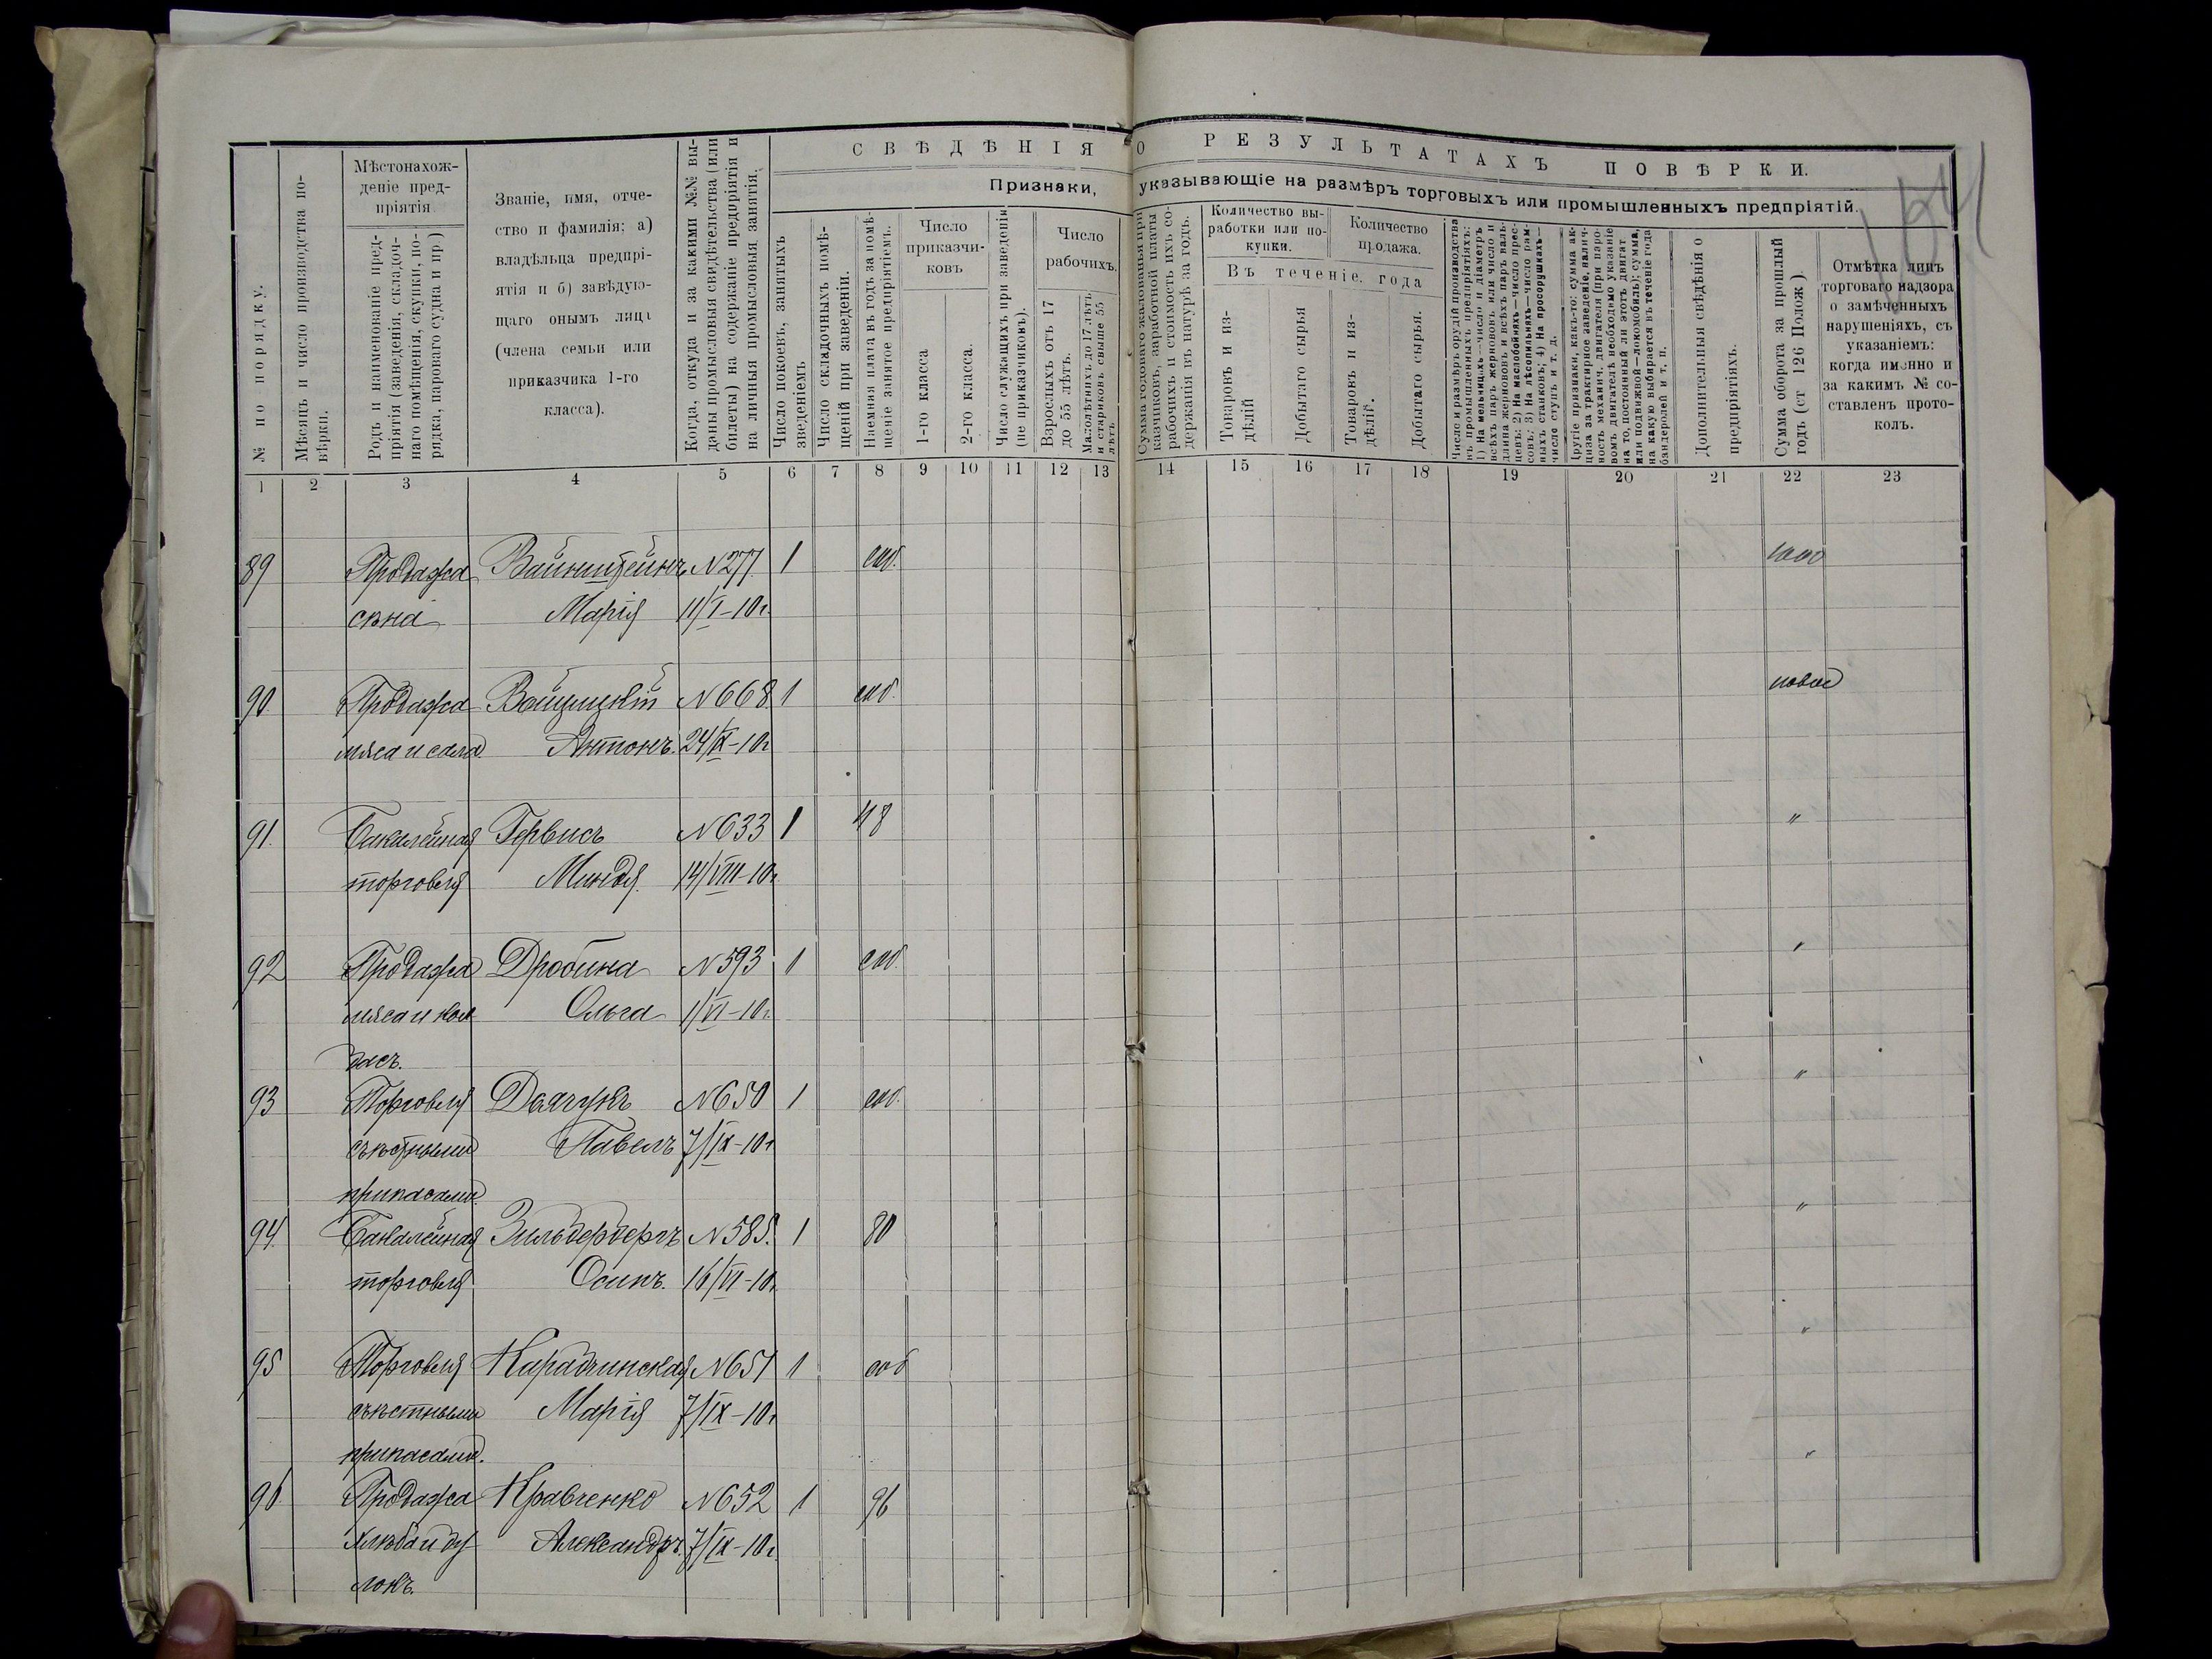 СВѢДѢНІЯ О РЕЗУЛЬТАТАХЪ ПОВѢРКИ.
Признаки, указывающіе на размѣръ торговыхъ или промышленныхъ предпріятій.
№ по порядку.
Мѣсяцъ и число производства по-
вѣрки.
Мѣстонахож-
деніе пред-
пріятія
Родъ и наименованіе пред-
пріятія (заведенія, складоч-
наго помѣщенія, скупки, по-
рядка, пароваго судна и пр.)
Званіе, имя, отче-
ство и фамилія; а)
владѣльца предпрі-
ятія и б) завѣдую-
щаго онымъ лица
(члена семьи или
приказчика 1-го
класса).
Когда, откуда и за какими №№ вы-
даны промысловыя свидѣтельства (или
билеты) на содержаніе предпріятія и
на личныя промысловыя занятія.
Число покоевъ, занятыхъ
зведеніемъ
Число складочныхъ помѣ-
щеній при заведеніи.
Наемная плата въ годъ за помѣ-
щеніе занятое предпріятіемъ.
Число
приказчи-
ковъ
1-го класса
2-го класса.
Число служащихъ при заведеніи
(не приказчиковъ).
Число
рабочихъ.
Взрослыхъ отъ 17
до 55 лѣтъ.
Малолѣтнихъ до 17 лѣтъ
и стариковъ свыше 55
лѣтъ
Сумма годоваго жалованья при-
казчиковъ, заработной платы
рабочихъ и стоимость ихъ со-
держанія въ натурѣ за годъ.
Количество вы-
работки или по-
купки.
Количество
продажа.
Въ теченіе. года
Товаровъ и из-
дѣлій
Добытаго сырья
Товаровъ и из-
дѣлій.
Добытаго сырья.
Число и размѣръ орудій производства
въ промышленныхъ предпріятіяхъ:
1) На мельницахъ—число и діаметръ
всѣхъ паръ жернововъ или число и
длина жернововъ и всѣхъ паръ валь-
цевъ; 2) На маслобойняхъ—число прес-
совъ; 3) На лѣсопильняхъ—число рам-
ныхъ станковъ; 4) На просорушкахъ—
число ступъ и т. д.
Другіе признаки, какъ-то: сумма ак-
циза за трактирное заведеніе, налич-
ность механич. двигателя (при паро-
вомъ двигателѣ необходимо указаніе
на то, постоянный ли этотъ двигат
или подвижной—локомобиль); сумма,
на какую выбирается въ теченіе года
бандеролей и т. п.
Дополнительныя свѣдѣнія о
предпріятіяхъ.
Сумма оборота за прошлый
годъ (ст 126 Полож)
Отмѣтка лицъ
торговаго надзора
о замѣченныхъ
нарушеніяхъ, съ
указаніемъ:
когда именно и
за какимъ № со-
ставленъ прото-
колъ.
1 2 3 4 5 6 7 8 9 10 11 12 13 14 15 16 17 18 19 20 21 22 23
89 Продажа Вайнштейнъ N277 1 соб. 1000
сѣна Марія 11/I-10г.
90. Продажа N668 1 соб. новое
мяса и сала Антонъ. 24/IX-10г
91. Бакалейная Гервисъ N633 1 48 "
торговля Миндля. 14/VIII-10г.
92 Продажа Дробина N593 1 соб. "
мяса и кол Ольга 1/VI-10г.
басъ.
93 Торговля Дьячукъ N650 1 соб. "
съѣстными Павелъ 7/IX-10г
припасами.
94. Бакалейная Зильбербергъ N585. 1 80 "
торговля Осипъ. 16/VI-10г.
95 Торговля N651 1 соб "
съѣстными Марія 7/IX-10г
припасами.
96. Продажа Кравченко N652 1 96 "
хлѣба и бу Александръ. 7/IX-10г.
локъ.